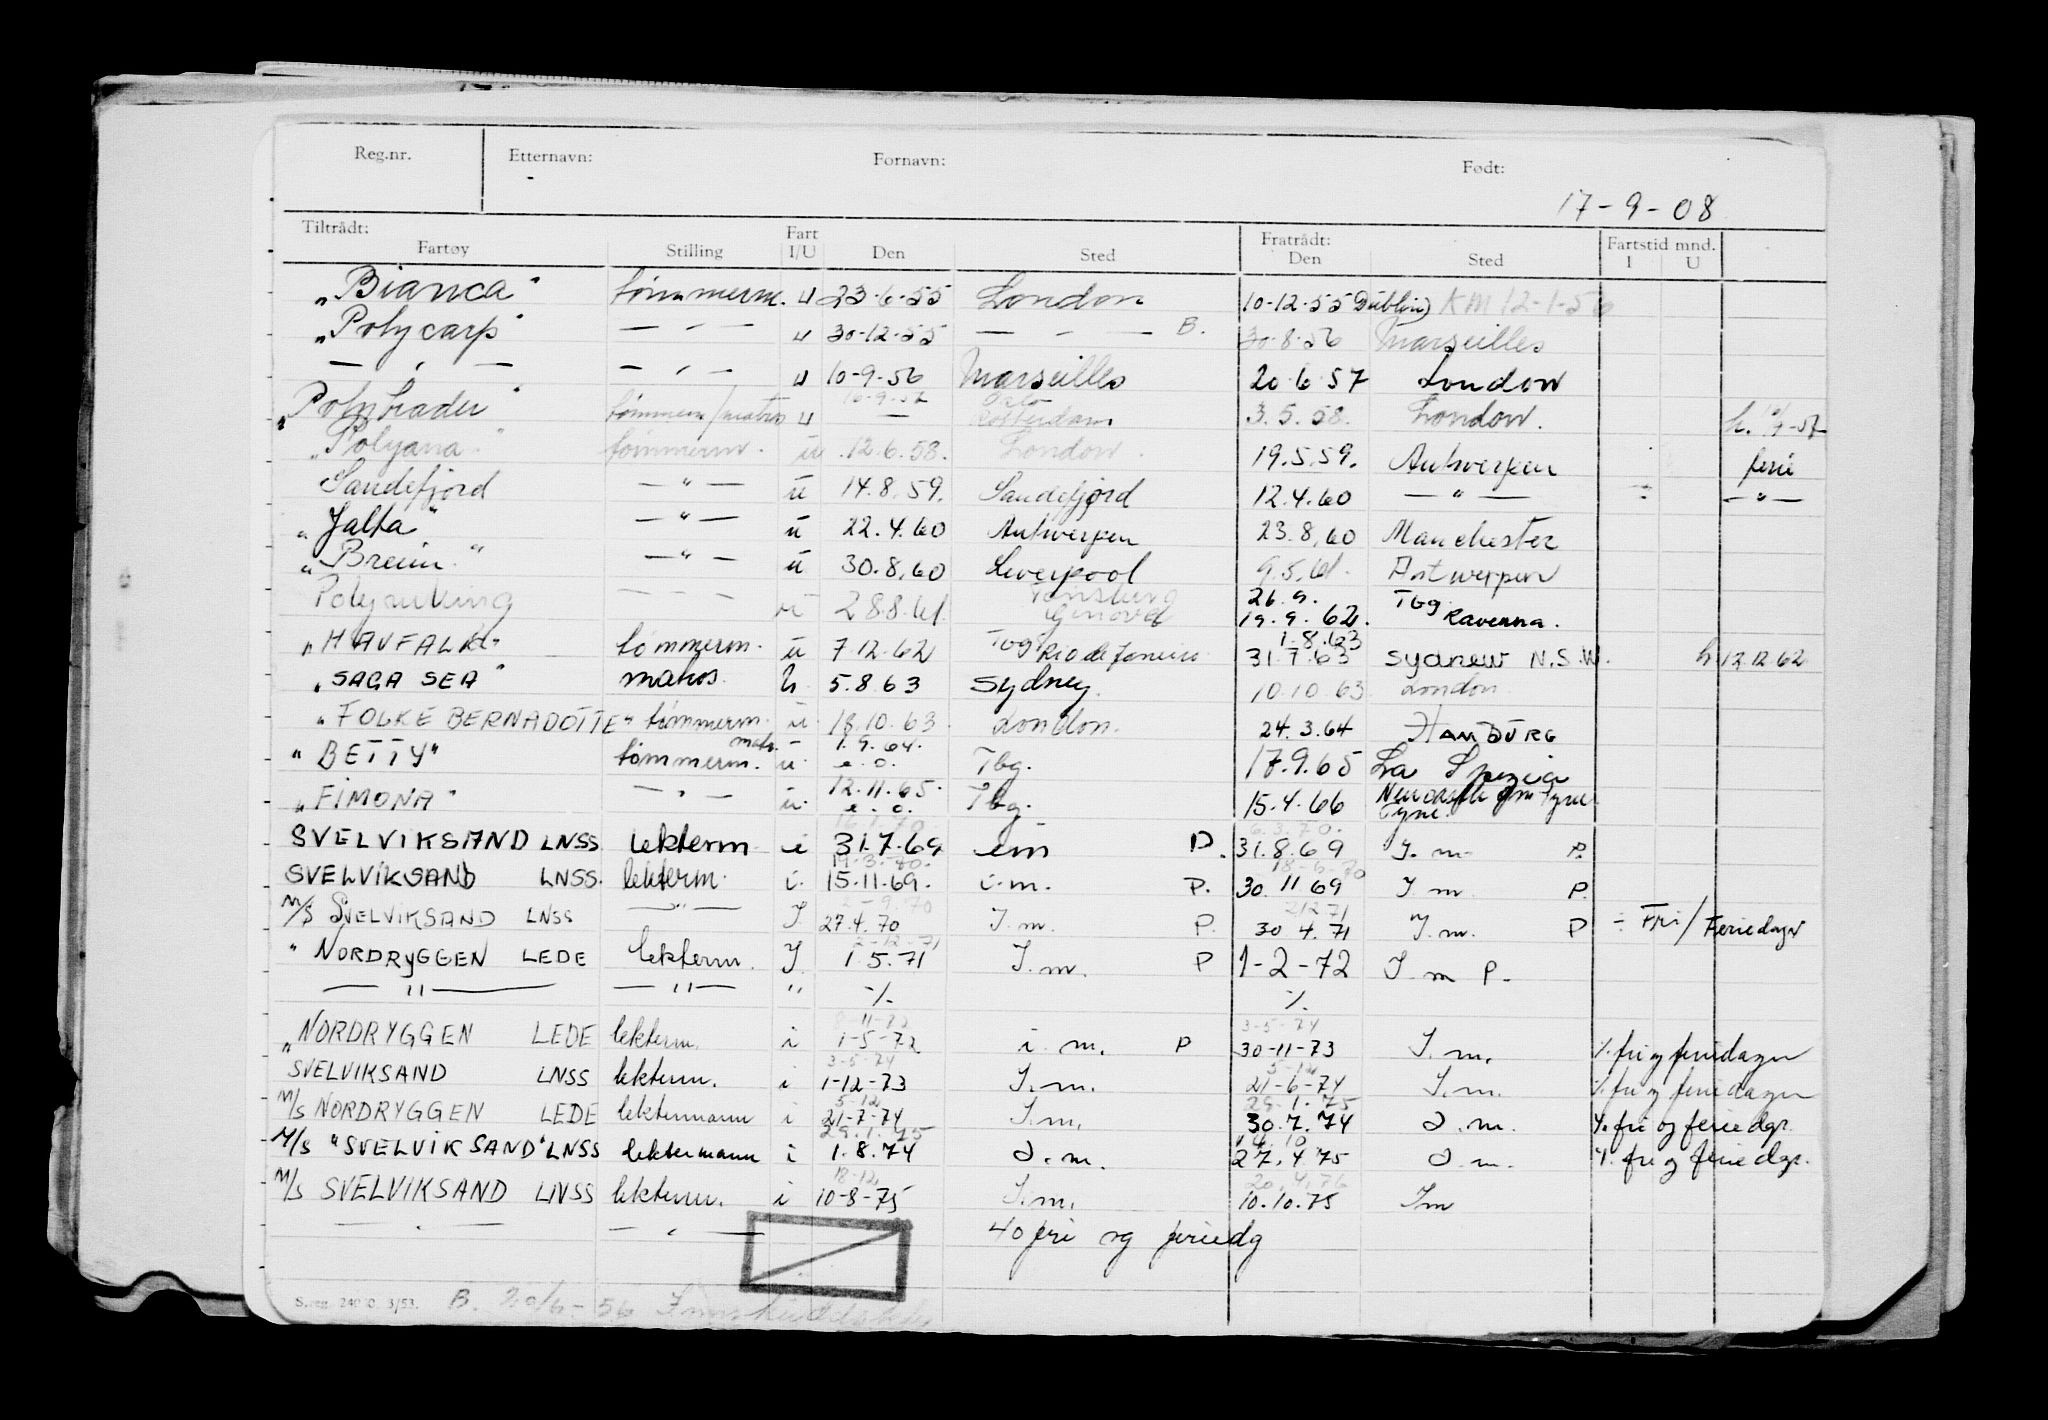 Reg.nr. Etternavn: Fornavn: Født:
17-9-08
Tiltrådt: Fartøy Stilling Fart I/U Den Sted Fratrådt: Den Sted Fartstid mnd. I U
„Bianca" tømmerm. u 23·6·55 London 10-12-55 Dublin) KM 12-1-56
„Polycarp" — " — u 30-12-55 — " — B. 30·8·56 Marseilles
— " — — " — u 10-9-56 Marseilles 20·6·57 London
10-9-57 Oslo
„Polytrader" tømmerm/matros u — Rotterdam 3.5.58. London.
„Polyana" tømmerm. u 12.6.58. London. 19.5.59. Antwerpen ferie
Sandefjord — " — u 14.8.59. Sandefjord 12.4.60 — " — — " —
„Jalta" — " — u 22.4.60 Antwerpen 23.8.60 Manchester
„Breim" — " — u 30.8.60 Liverpool 9.5.61. Antwerpen
Tønsberg 26.9. Tbg
Polyviking — — — 28.8.61 Genova 19.9.62. Ravenna.
1.8.63
„HAVFALK" tømmerm. u 7.12.62 Tbg Rio de Janeiro 31.7.63 Sydney N.S.W. h 12.12 62
„SAGA SEA" matros. h. 5.8.63 Sydney. 10.10.63 London
„FOLKE BERNADOTTE" tømmerm. u. 18.10.63. London. 24.3.64 HAMBURG
matr. u 1.9.64.
„BETTY" tømmerm. u. e.o. Tbg. 17.9.65 La Spezia
12.11.65.
„FIMONA" — " — u. e.o. Tbg. 15.4.66 Tyne.
6.3.70.
SVELVIKSAND LNSS lekterm i 31.7.69 im P. 31.8.69 I.m. P.
18-6-70
SVELVIKSAND LNSS. lekterm. i. 15.11.69. i.m. P. 30 11 69 I m. P
2-9.70 21271
M/S SVELVIKSAND LNSS — " — I. 27.4.70 I.m. P. 30 4.71 I.m. P ÷ Fri/Feriedager
2-12-71
" NORDRYGGEN LEDE lekterm. I. 1.5.71 I.m. P 1-2-72 I m P.
— " — — " — " ·/. ·/.
3-5-74
„NORDRYGGEN LEDE lekterm. i 1-5-72 i m. P 30-11-73 I.m. ·/. fri og feriedager
3-5-74 5-12
SVELVIKSAND LNSS lekterm. i 1-12-73 I.m. 21-6-74 I.m. ·/. fri og feriedager
5-12 29.1.75
M/S NORDRYGGEN LEDE lektermann i 21-7-74 I.m. 30.7.74 I.m. ·/. fri og feriedgr.
29.1.75 14.10
M/S "SVELVIKSAND" LNSS lektermann i 1.8.74 I.m. 27.4.75 I.m. ·/. fri og feriedgr.
18-12 20.4.76
M/S SVELVIKSAND LNSS lekterm. i 10-8-75 I.m. 10.10.75 Im
— " — — " — 40 fri og feriedg
S.reg. 240 0. 3/53. B. 29/6-56